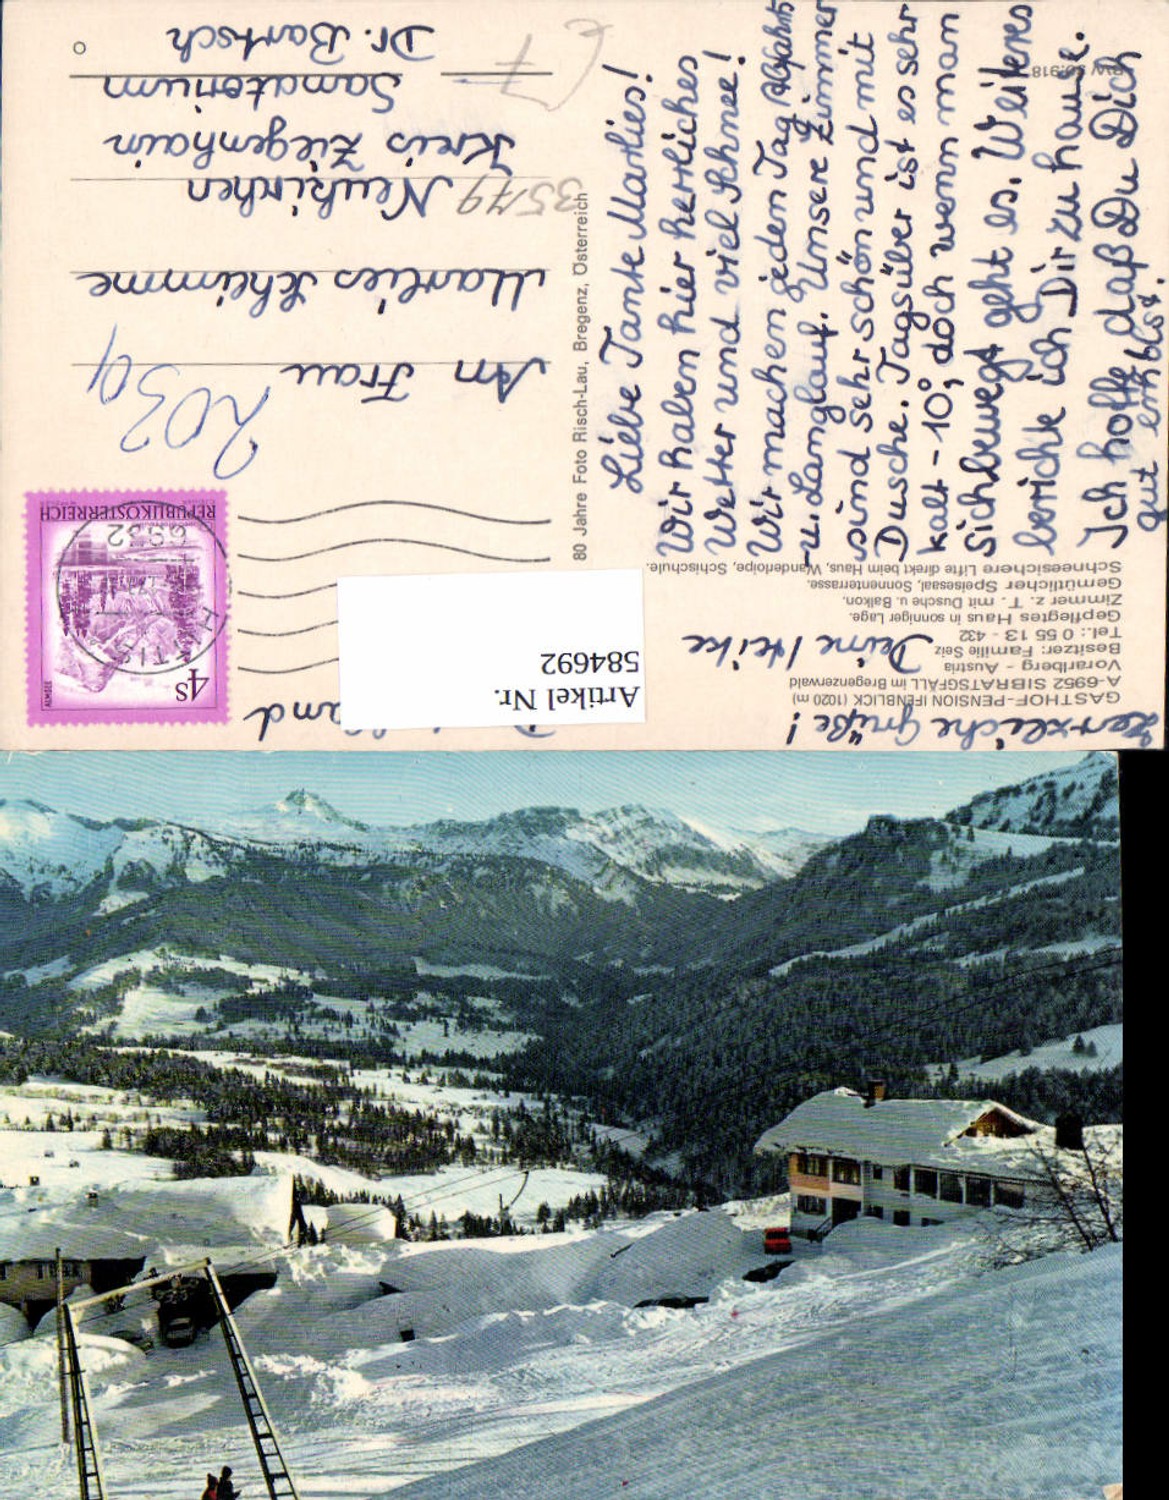 GASTHOF-PENSION IFENBLICK (1020 m)
A-6952 SIBRATSGFÄLL im Bregenzerwald
Vorarlberg - Austria
Besitzer: Familie Seiz
Tel.: 0 55 13 - 432
Gepflegtes Haus in sonniger Lage.
Zimmer z. T. mit Dusche u. Balkon.
Gemütlicher Speisesaal, Sonnenterrasse.
Schneesichere Lifte direkt beim Haus, Wanderloipe, Schischule.
Liebe Tante Marlies!
Wir haben hier herrliches
Wetter und viel Schnee!
Wir machen jeden Tag Abfahrts
-u. Langlauf. Unsere Zimmer
sind sehr schön und mit
Dusche. Tagsüber ist es sehr
kalt -10°, doch wenn man
sich bewegt geht es. Weiteres
berichte ich Dir zu hause.
Ich hoffe daß Du Dich
gut erholst.
Herzliche Grüße!
Deine Heike
80 Jahre Foto Risch-Lau, Bregenz, Österreich
REPUBLIK ÖSTERREICH
4S
ALMSEE
6952
An Frau
Marlies Schimme
3579 Neukirchen
Kreis Ziegenhain
Sanatorium
Dr. Bartsch
Artikel Nr.
584692